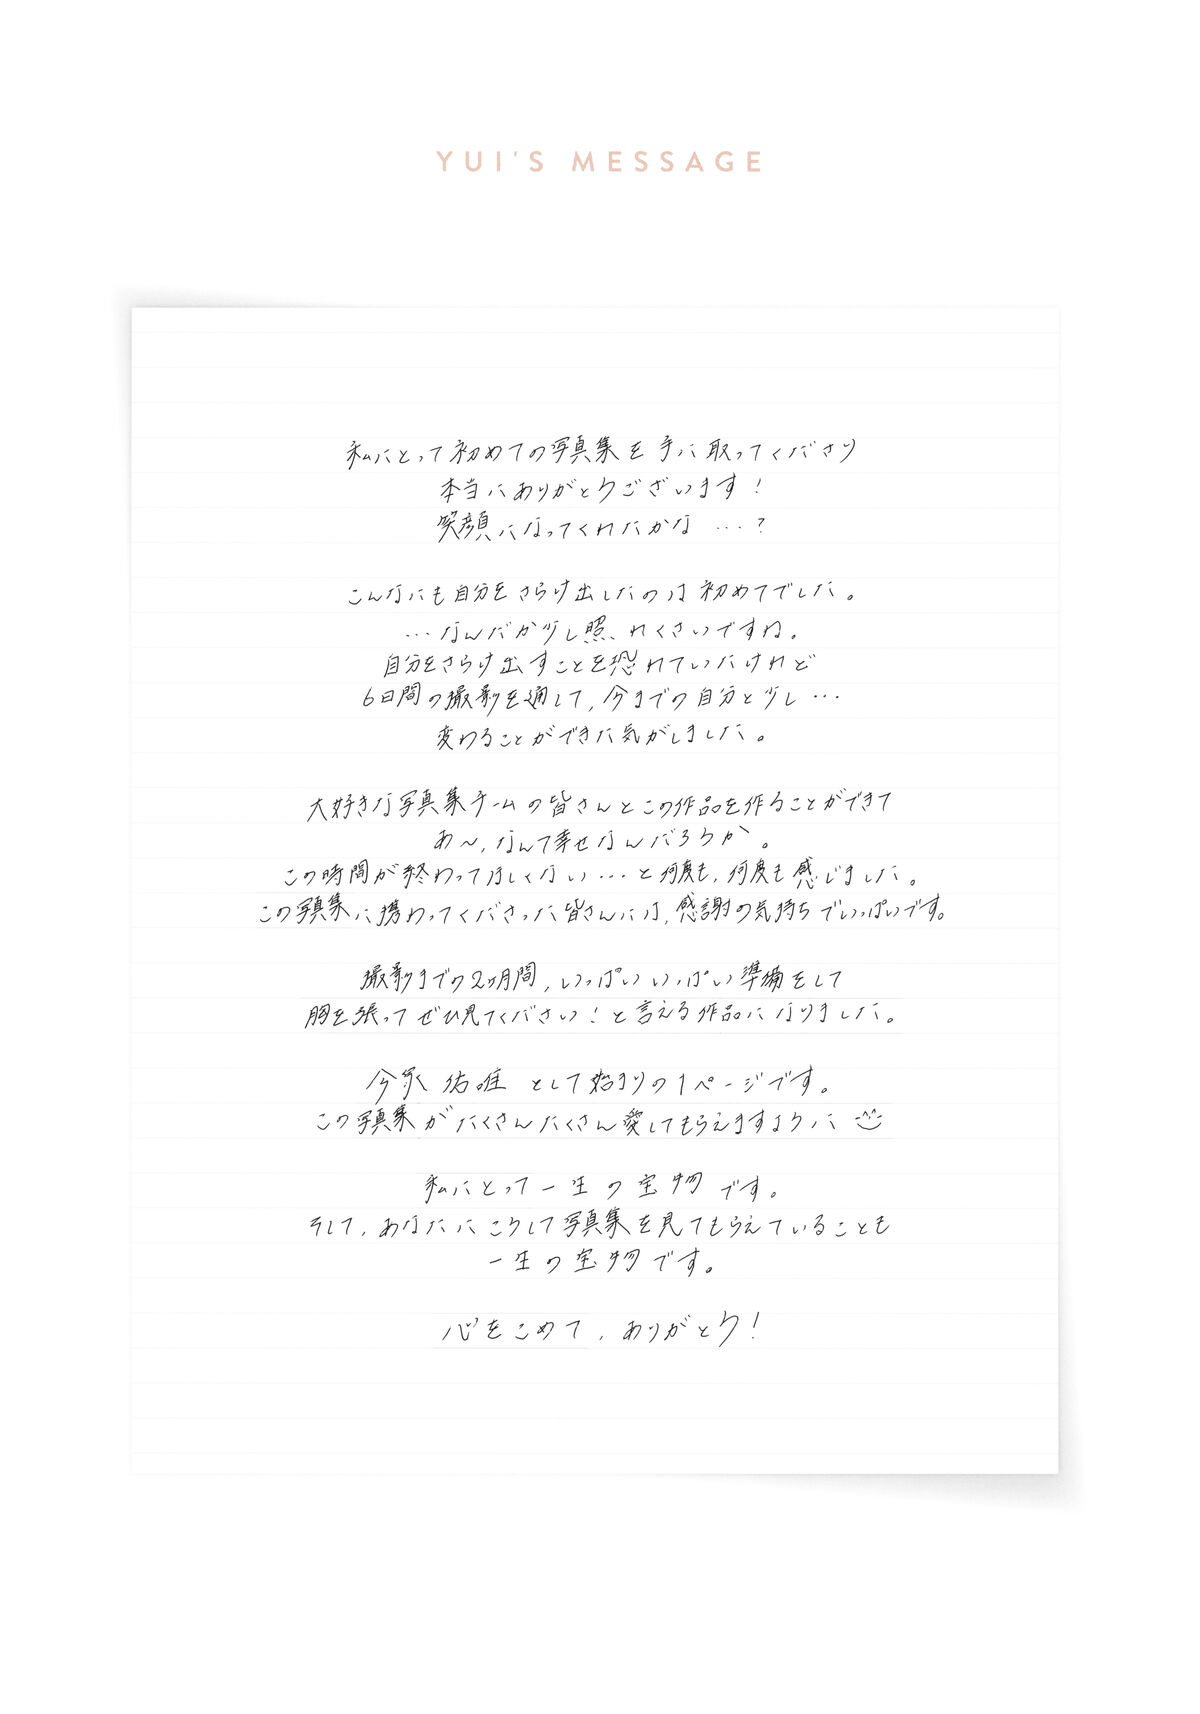 YUI'S MESSAGE
私にとって初めての写真集を手に取ってくださり
本当にありがとうございます!
笑顔になってくれたかな …?
こんなにも自分をさらけ出したのは初めてでした。
…なんだか少し照れくさいですね。
自分をさらけ出すことを恐れていたけれど
6日間の撮影を通して、今までの自分と少し…
変わることができた気がしました。
大好きな写真集チームの皆さんとこの作品を作ることができて
あ〜、なんて幸せなんだろうか。
この時間が終わってほしくない…と何度も、何度も感じました。
この写真集に携わってくださった皆さんには、感謝の気持ちでいっぱいです。
撮影までの2ヶ月間、いっぱいいっぱい準備をして
胸を張ってぜひ見てください!と言える作品になりました。
今泉 佑唯 として始まりの1ページです。
この写真集がたくさんたくさん愛してもらえますように
私にとって一生の宝物です。
そして、あなたにこうして写真集を見てもらえていることも
一生の宝物です。
心をこめて、ありがとう!